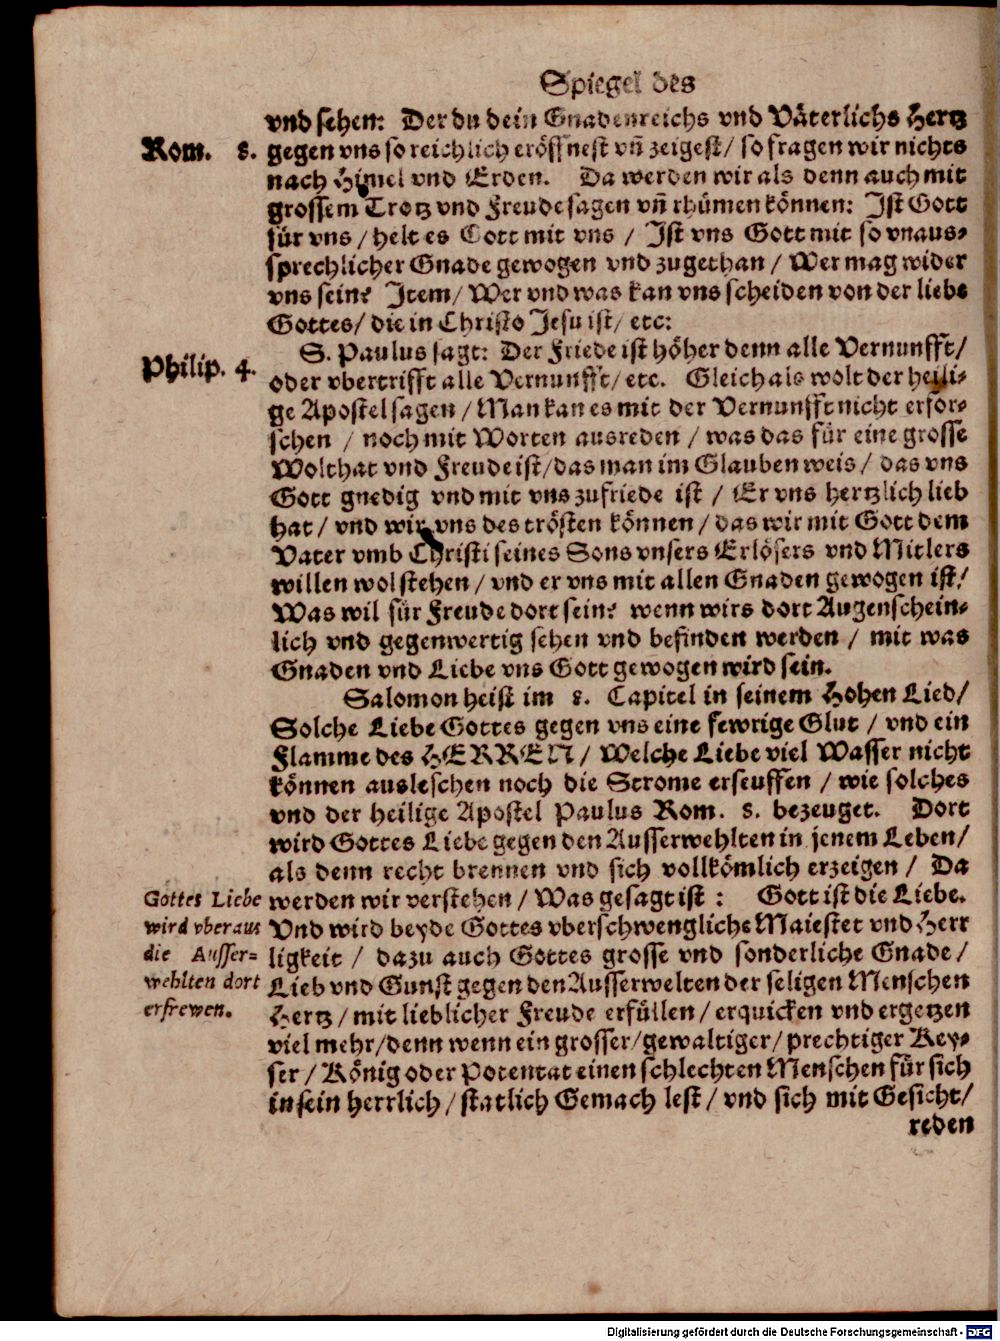 Spiegel des
vnd sehen: Der du dein Gnadenreichs vnd Väterlichs Hertz
Rom. 8. gegen vns so reichlich eröffnest vn̄ zeigest/ so fragen wir nichts
nach Himel vnd Erden. Da werden wir als denn auch mit
grossem Trotz vnd Freude sagen vn̄ rhümen können: Ist Gott
für vns/ helt es Gott mit vns / Ist vns Gott mit so vnaus-
sprechlicher Gnade gewogen vnd zugethan / Wer mag wider
vns sein? Item/ Wer vnd was kan vns scheiden von der liebe
Gottes/ die in Christo Jesu ist/ etc:
S. Paulus sagt: Der Friede ist höher denn alle Vernunfft/
Philip. 4. oder vbertrifft alle Vernunfft/ etc. Gleich als wolt der heili-
ge Apostel sagen / Man kan es mit der Vernunfft nicht erfor-
schen / noch mit Worten ausreden / was das für eine grosse
Wolthat vnd Freude ist/ das man im Glauben weis / das vns
Gott gnedig vnd mit vns zufriede ist / Er vns hertzlich lieb
hat / vnd wir vns des trösten können / das wir mit Gott dem
Vater vmb Christi seines Sons vnsers Erlösers vnd Mitlers
willen wol stehen / vnd er vns mit allen Gnaden gewogen ist/
Was wil für Freude dort sein? wenn wirs dort Augenschein-
lich vnd gegenwertig sehen vnd befinden werden / mit was
Gnaden vnd Liebe vns Gott gewogen wird sein.
Salomon heist im 8. Capitel in seinem Hohen Lied/
Solche Liebe Gottes gegen vns eine fewrige Glut / vnd ein
Flamme des HERREN / Welche Liebe viel Wasser nicht
können ausleschen noch die Strome erseuffen / wie solches
vnd der heilige Apostel Paulus Rom. 8. bezeuget. Dort
wird Gottes Liebe gegen den Ausserwehlten in jenem Leben/
als denn recht brennen vnd sich vollkömlich erzeigen / Da
werden wir verstehen / Was gesagt ist : Gott ist die Liebe.
Vnd wird beyde Gottes vberschwengliche Maiestet vnd Herr
ligkeit / dazu auch Gottes grosse vnd sonderliche Gnade /
Lieb vnd Gunst gegen den Ausserwelten der seligen Menschen
Hertz / mit lieblicher Freude erfüllen / erquicken vnd ergetzen
viel mehr/ denn wenn ein grosser/ gewaltiger/ prechtiger Key-
ser / König oder Potentat einen schlechten Menschen für sich
in sein herrlich / statlich Gemach lest / vnd sich mit Gesicht/
reden
Gottes Liebe
wird vberaus
die Ausser-
wehlten dort
erfrewen.
Digitalisierung gefördert durch die Deutsche Forschungsgemeinschaft - DFG